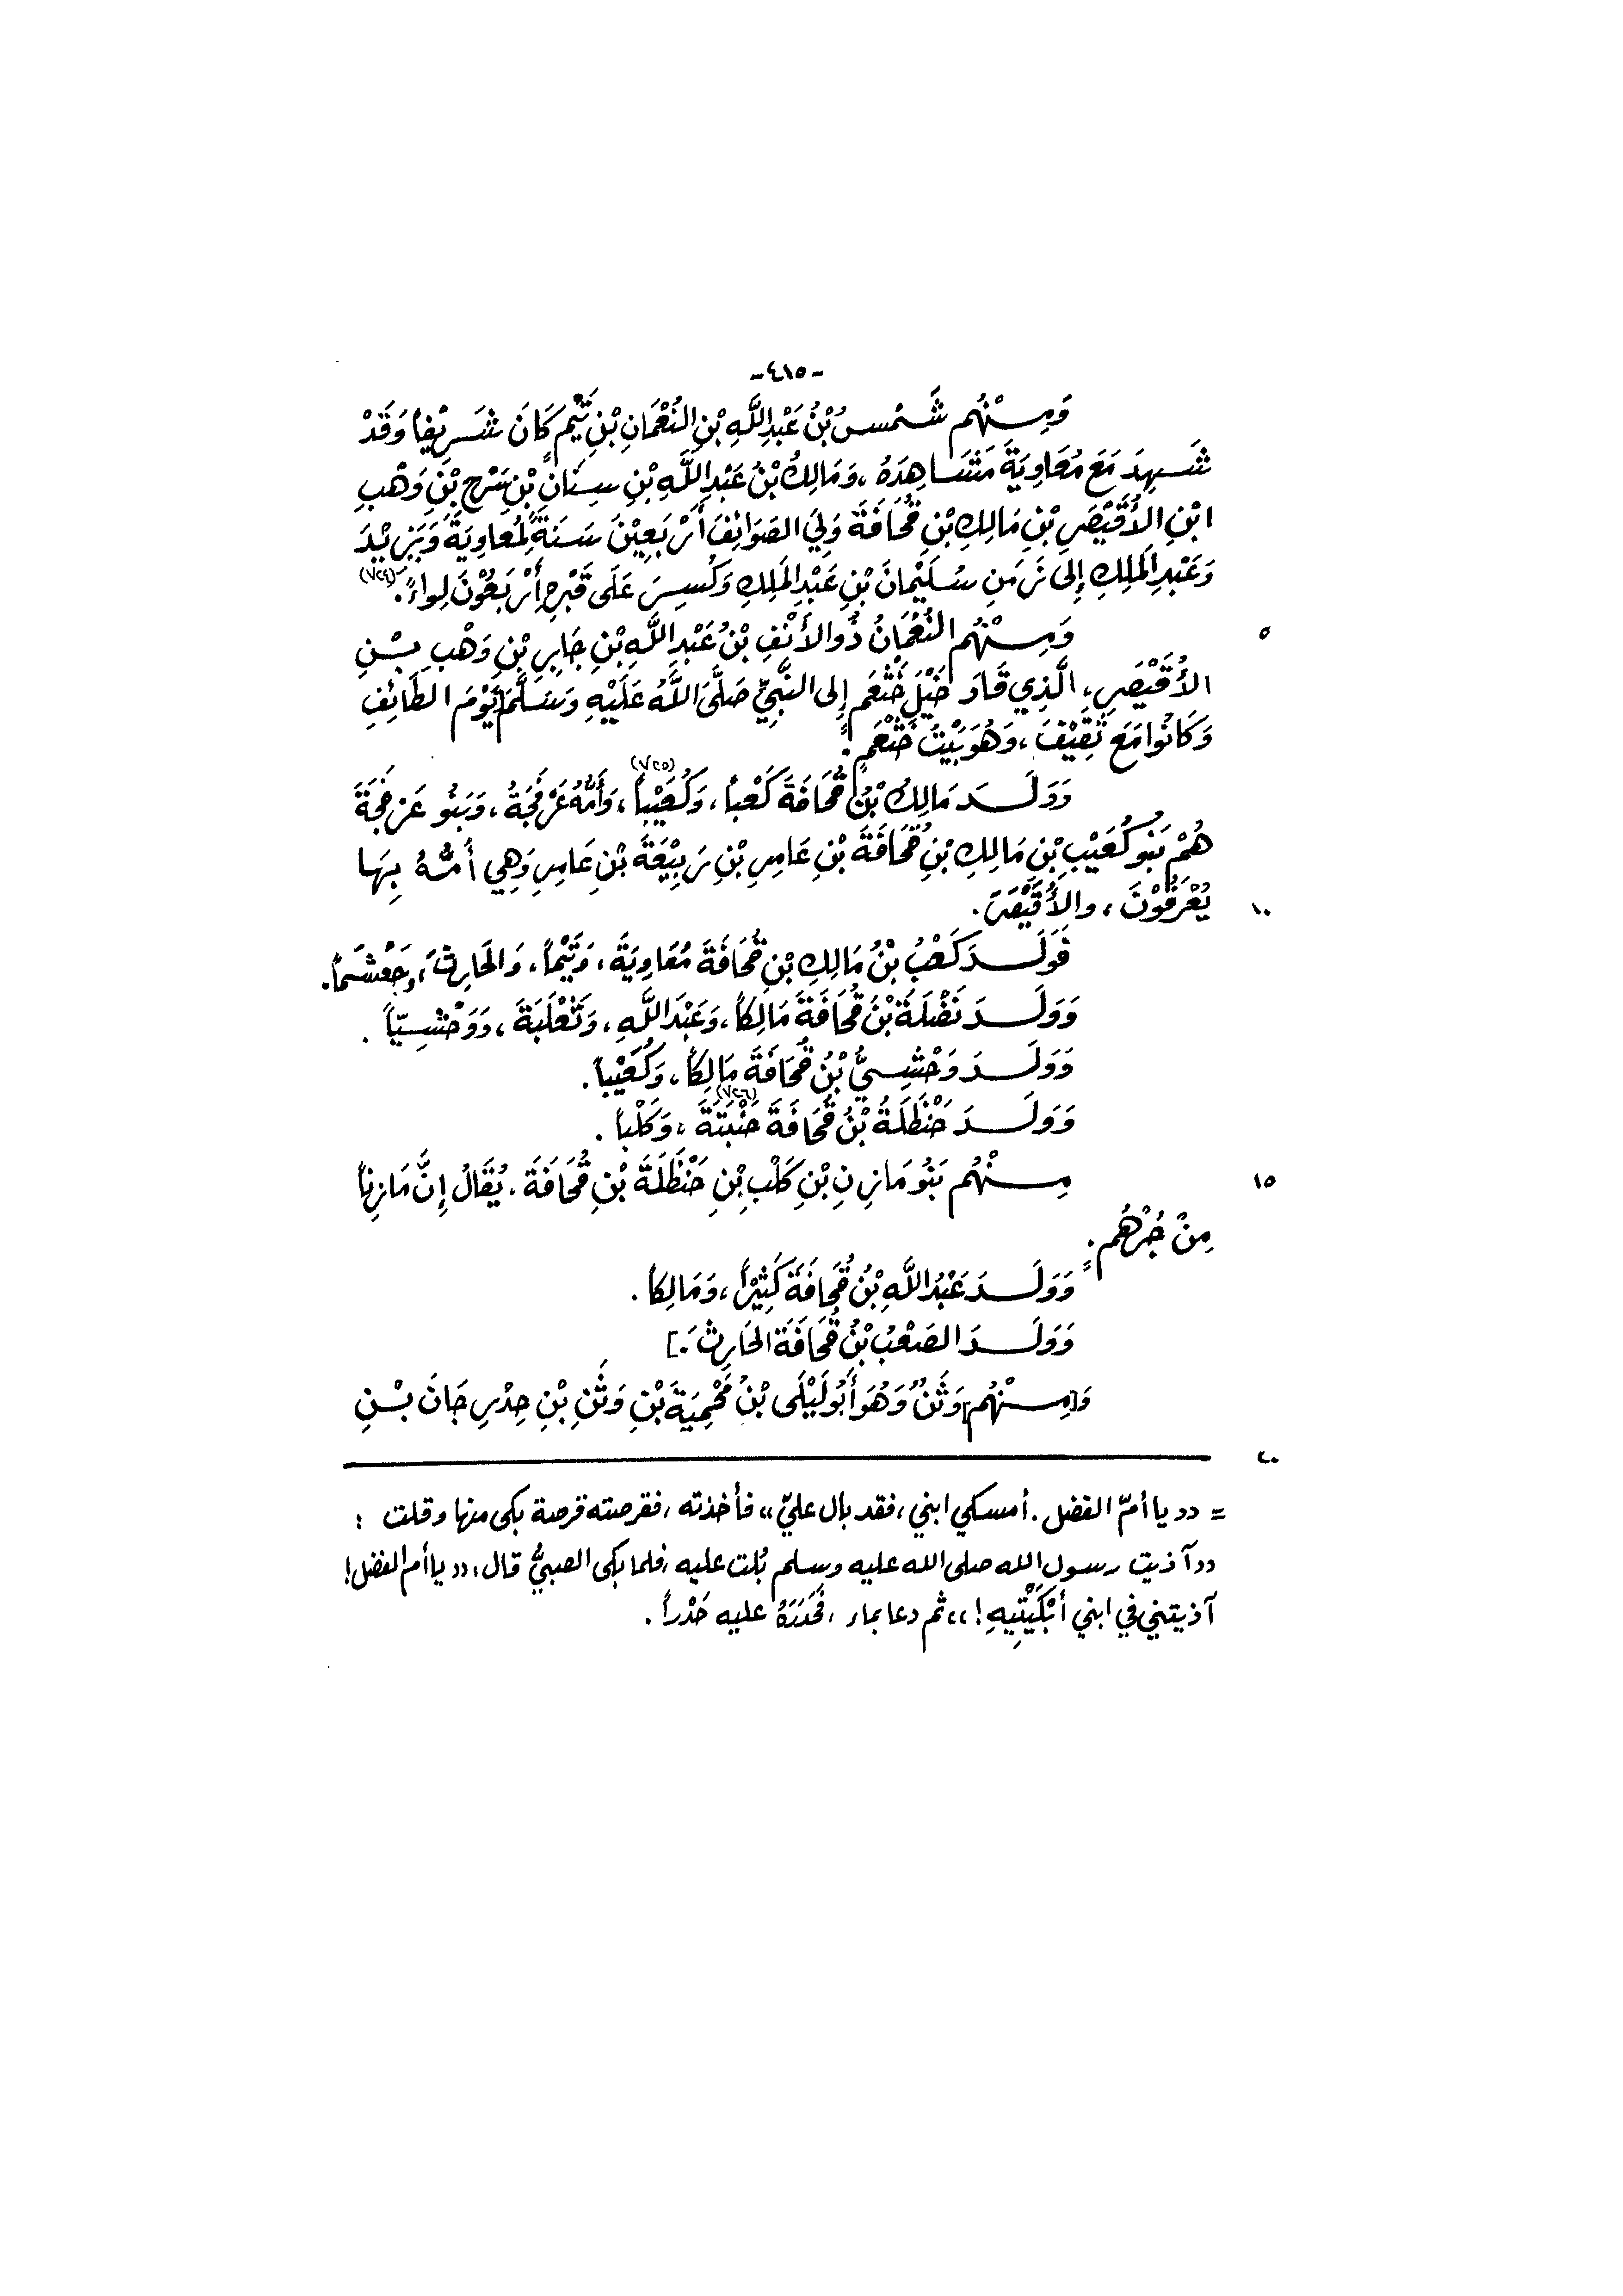 -٤١٥-
وَمِنْهُم شَمْسُ بْنُ عَبْدِ اللَّهِ بْنِ النُّعْمَانِ بْنِ تَيْمٍ كَانَ شَرِيْفاً وَقَدْ
شَهِدَ مَعَ مُعَاوِيَةَ مَشَاهِدَهُ، وَمَالِكُ بْنُ عَبْدِ اللَّهِ بْنِ سِنَانِ بْنِ سَرْحِ بْنِ وَهْبِ
ابْنِ الأُقَيْصِرِ بْنِ مَالِكِ بْنِ قُحَافَةَ وَلِيَ الصَوَائِفَ أَرْبَعِيْنَ سَنَةً لِمُعاوِيَةَ وَيَزِيْدَ
وَعَبْدِ المَلِكِ إِلى زَمَنِ سُلَيْمانَ بْنِ عَبْدِ المَلِكِ وَكُسِرَ عَلَى قَبْرِهِ أَرْبَعُوْنَ لِواءً.(٧٢٤)
وَمِنْهُم النُّعْمَانُ ذُو الأَنْفِ بْنُ عَبْدِ اللَّهِ بْنِ جَابِرِ بْنِ وَهْبِ بْنِ ٥
الأُقَيْصِرِ، الَّذِي قَادَ خَيْلَ خَثْعَمٍ إِلى النَّبِيِّ صَلَّى اللَّهُ عَلَيْهِ وَسَلَّمَ يَوْمَ الطَائِفِ
وَكَانُوا مَعَ ثَقِيْفَ، وَهُوَ بَيْتُ خَثْعَمٍ.
وَوَلَدَ مَالِكُ بْنُ قُحَافَةَ كَعْباً، وَكُعَيْباً(٧٢٥)، وَأُمُّهُ عَرْفَجَةُ، وَبَنُو عَرْفَجَةَ
هُمْ بَنُو كُعَيْبِ بْنِ مَالِكِ بْنِ قُحَافَةَ بْنِ عَامِرِ بْنِ رَبِيْعَةَ بْنِ عَامِرٍ وَهِي أُمُّهُ بِهَا
يُعْرَفُوْنَ، والأُقَيْصِرَ. ١٠
فَوَلَدَ كَعْبُ بْنُ مَالِكِ بْنِ قُحَافَةَ مُعَاوِيَةَ، وَتَيْماً، وَالحَارِثَ، وجَعْشَماً.
وَوَلَدَ نَضْلَةُ بْنُ قُحَافَةَ مَالِكاً، وَعَبْدَ اللَّهِ، وَثَعْلَبَةَ، وَوَحْشِيّاً.
وَوَلَدَ وَحْشِيُّ بْنُ قُحَافَةَ مَالِكاً، وَكُعَيْباً.
وَوَلَدَ حَنْظَلَةُ بْنُ قُحَافَةَ حَنْبَتَةَ(٧٢٦)، وَكَلْباً.
مِنْهُم بَنُو مَازِنِ بْنِ كَلْبِ بْنِ حَنْظَلَةَ بْنِ قُحَافَةَ. يُقَالُ إِنَّ مَازِناً ١٥
مِنْ جُرْهُمٍ.
وَوَلَدَ عَبْدُ اللَّهِ بْنُ قُحَافَةَ كَثِيْراً، وَمَالِكاً.
وَوَلَدَ الصَعْبُ بْنُ قُحَافَةَ الحَارِثَ.]
وَ[مِنْهُم] وَثَنٌ وَهُوَ أَبُو لَيْلَى بْنُ مَحْمِيَةَ بْنِ وَثَنِ بْنِ حِدْرِجَانَ بْنِ
٢٠
= «يا أمّ الفضل. أمسكي ابني، فقد بال عليّ» فأخذته، فقرصته قرصة بكى منها وقلت:
«آذيت رسول الله صلى الله عليه وسلم بُلت عليه، فلما بكى الصبيُّ قال: «يا أم الفضل!
آذيتني في ابني أَبْكَيْتِيهِ!» ثم دعا بماء، فَحَدَرَهُ عليه حَدْراً.